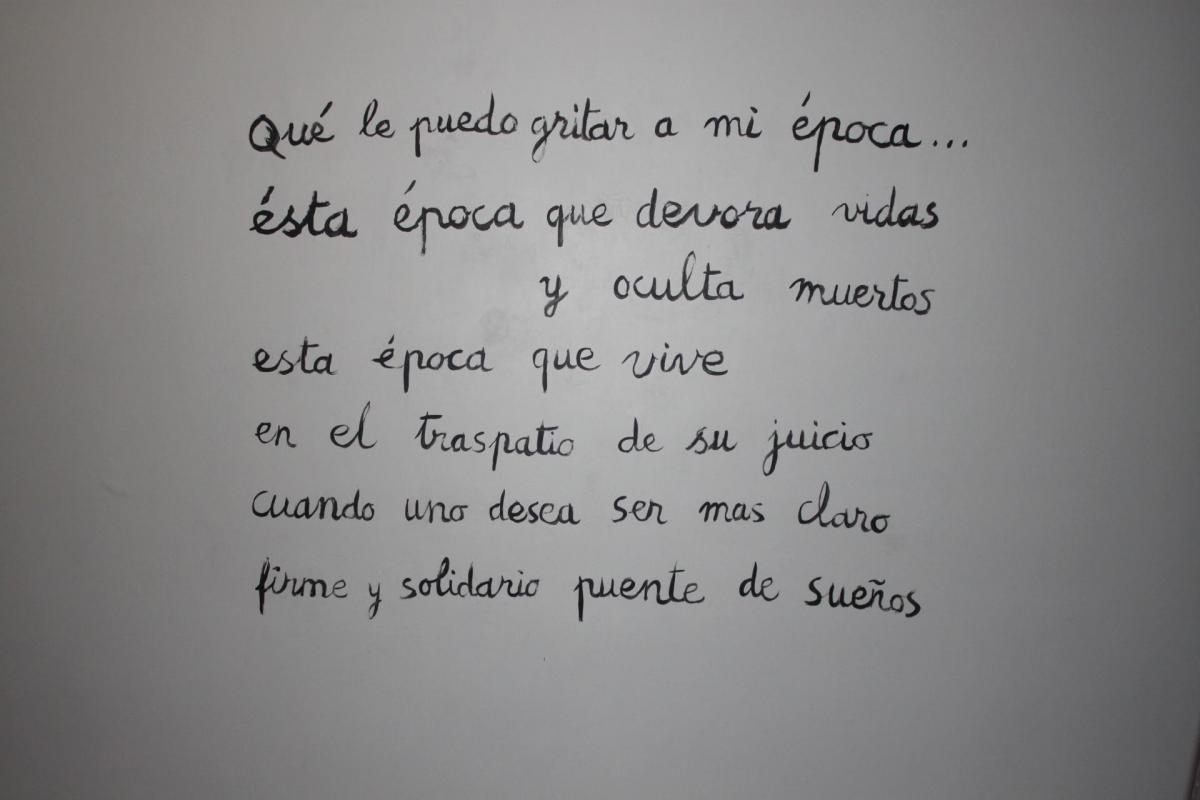 Qué le puedo gritar a mi época...
ésta época que devora vidas
y oculta muertos
esta época que vive
en el traspatio de su juicio
cuando uno desea ser mas claro
firme y solidario puente de sueños